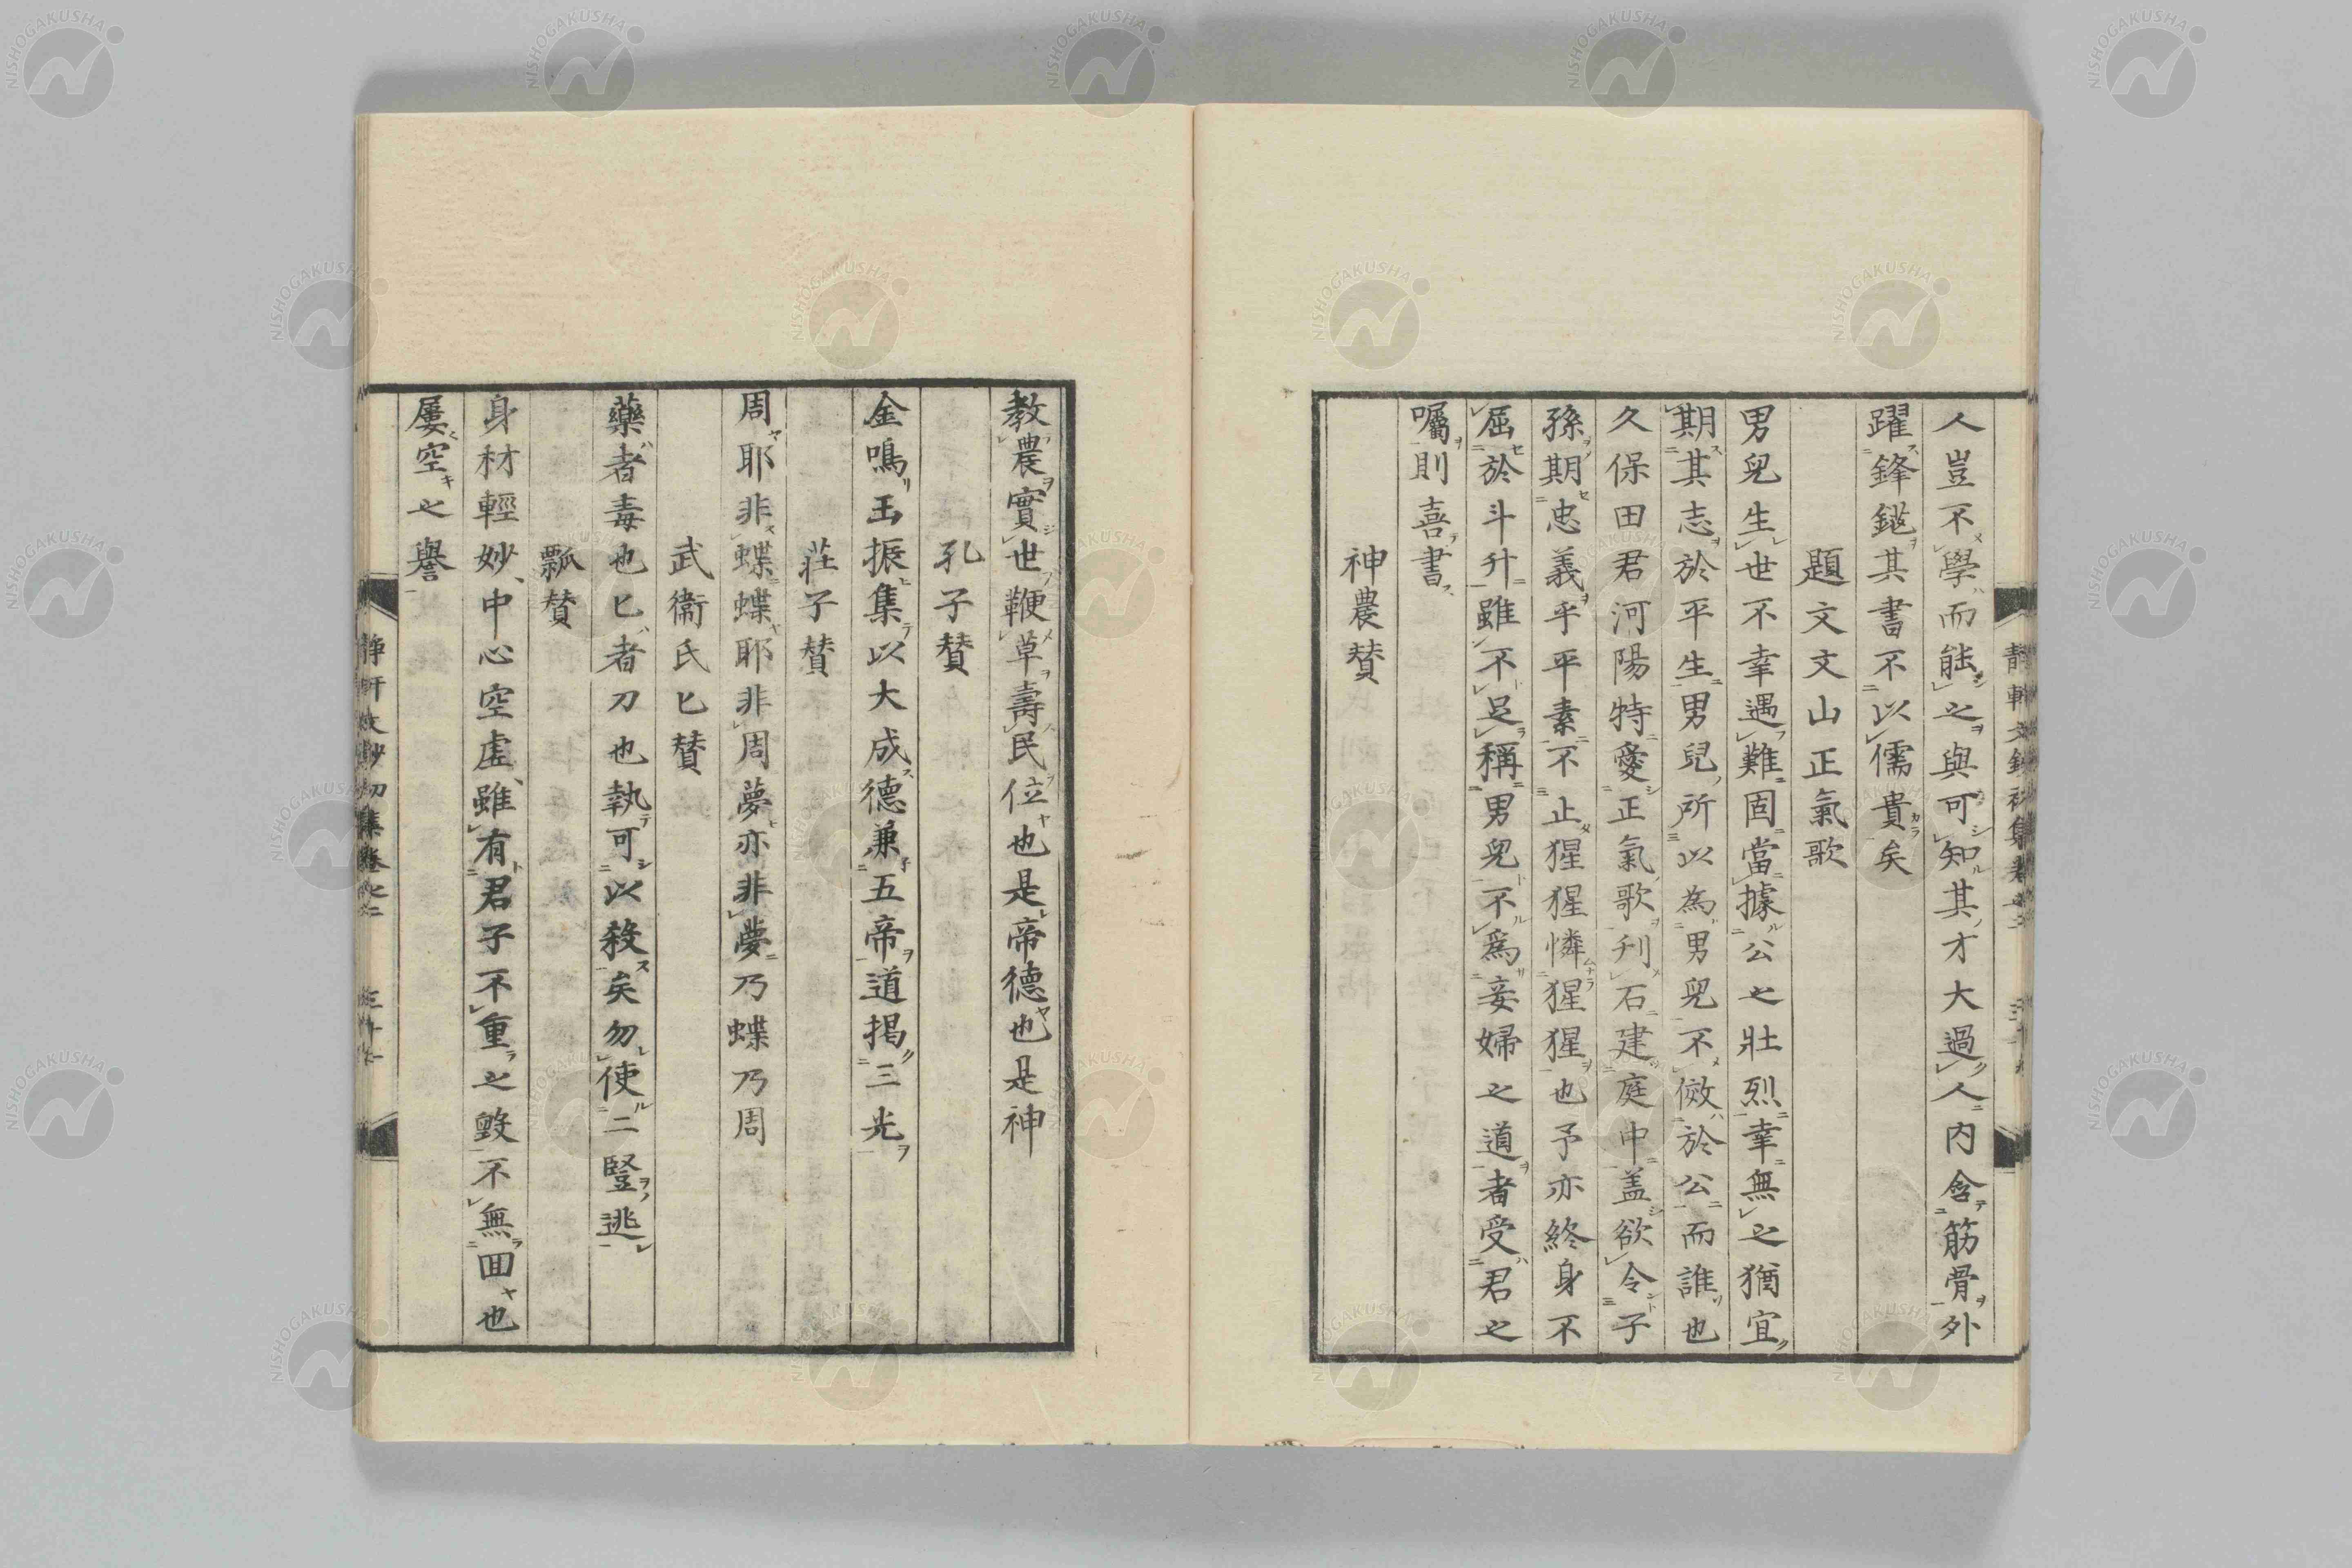 人豈不學而能之與可知其才大過人內含筋骨外
躍鋒鋩其書不以儒貴矣
題文文山正氣歌
男兒生世不幸遇難固當據公之壯烈幸無之猶宜
期其志於平生男兒所以為男兒不傚於公而誰也
久保田君河陽特愛正氣歌刋石建庭中盖欲令子
孫期忠義乎平素不止猩猩憐猩猩也予亦終身不
屈於斗升雖不足稱男兒不爲妾婦之道者受君之
囑則喜書
神農賛
教農實世鞭草壽民位也是帝德也是神
孔子賛
金鳴玉振集以大成德兼五帝道揭三光
莊子賛
周耶非蝶蝶耶非周夢亦非夢乃蝶乃周
武衞氏匕賛
藥者毒也匕者刀也執可以殺矣勿使二豎逃
瓢賛
身材輕妙中心空虛雖有君子不重之毀不無回也
屢空之譽
靜軒文鈔初集卷之二
NISHOGAKUSHA